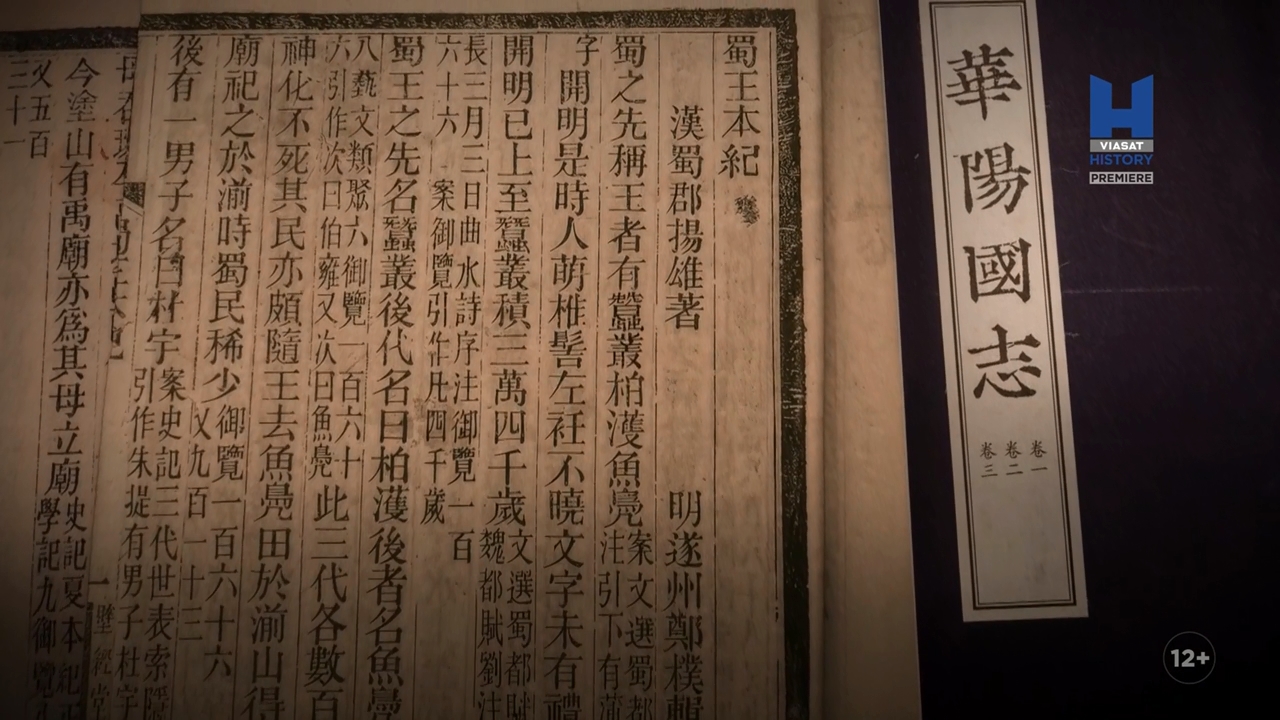 蜀王本紀
漢蜀郡揚雄著
明遂州鄭樸輯
蜀之先稱王者有蠶叢柏濩魚鳧
案文選蜀都
注引下有蒲
字開明是時人萌椎髻左衽不曉文字未有禮
開明已上至蠶叢積三萬四千歲
文選蜀都賦
魏都賦劉注
長三月三日曲水詩序注御覽一百
六十六
案御覽引作凡四千歲
蜀王之先名蠶叢後代名曰柏濩後者名魚鳧
八藝文類聚六御覽一百六十
六引作次曰伯雍又次曰魚鳧
此三代各數百
神化不死其民亦頗隨王去魚鳧田於湔山得
廟祀之於湔時蜀民稀少
御覽一百六十六
又九百一十三
後有一男子名曰杜宇
案史記三代世表索隱
引作朱提有男子杜宇
今塗山有禹廟亦爲其母立廟
史記夏本紀正
學記九御覽八
又五百
三十一
華陽國志
卷一
卷二
卷三
VIASAT
HISTORY
PREMIERE
12+